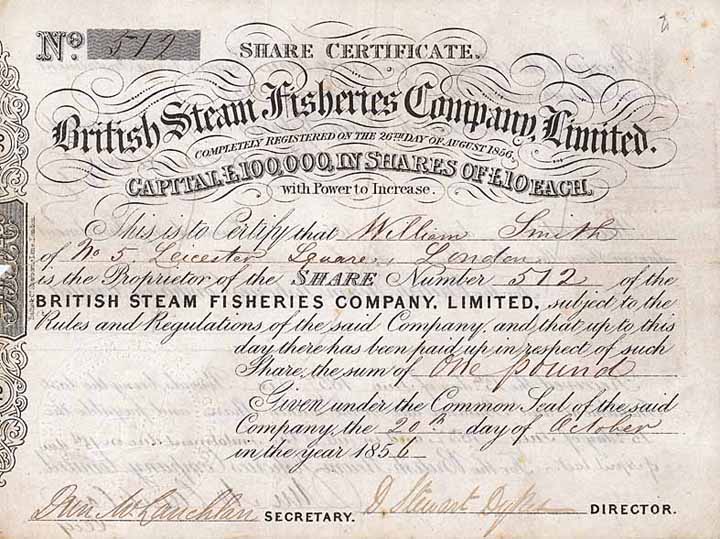 No. 512
SHARE CERTIFICATE.
British Steam Fisheries Company, Limited.
COMPLETELY REGISTERED ON THE 26TH DAY OF AUGUST 1856.
CAPITAL £100,000, IN SHARES OF £10 EACH,
with Power to Increase.
This is to Certify that William Smith
of No 5. Leicester Square, London
is the Proprietor of the SHARE Number 512 of the
BRITISH STEAM FISHERIES COMPANY, LIMITED, subject to the
Rules and Regulations of the said Company, and that up to this
day there has been paid up in respect of such
Share, the sum of One pound
Given under the Common Seal of the said
Company, the 20th day of October
in the year 1856
McLauchlan SECRETARY.
D. Stewart Dykes DIRECTOR.